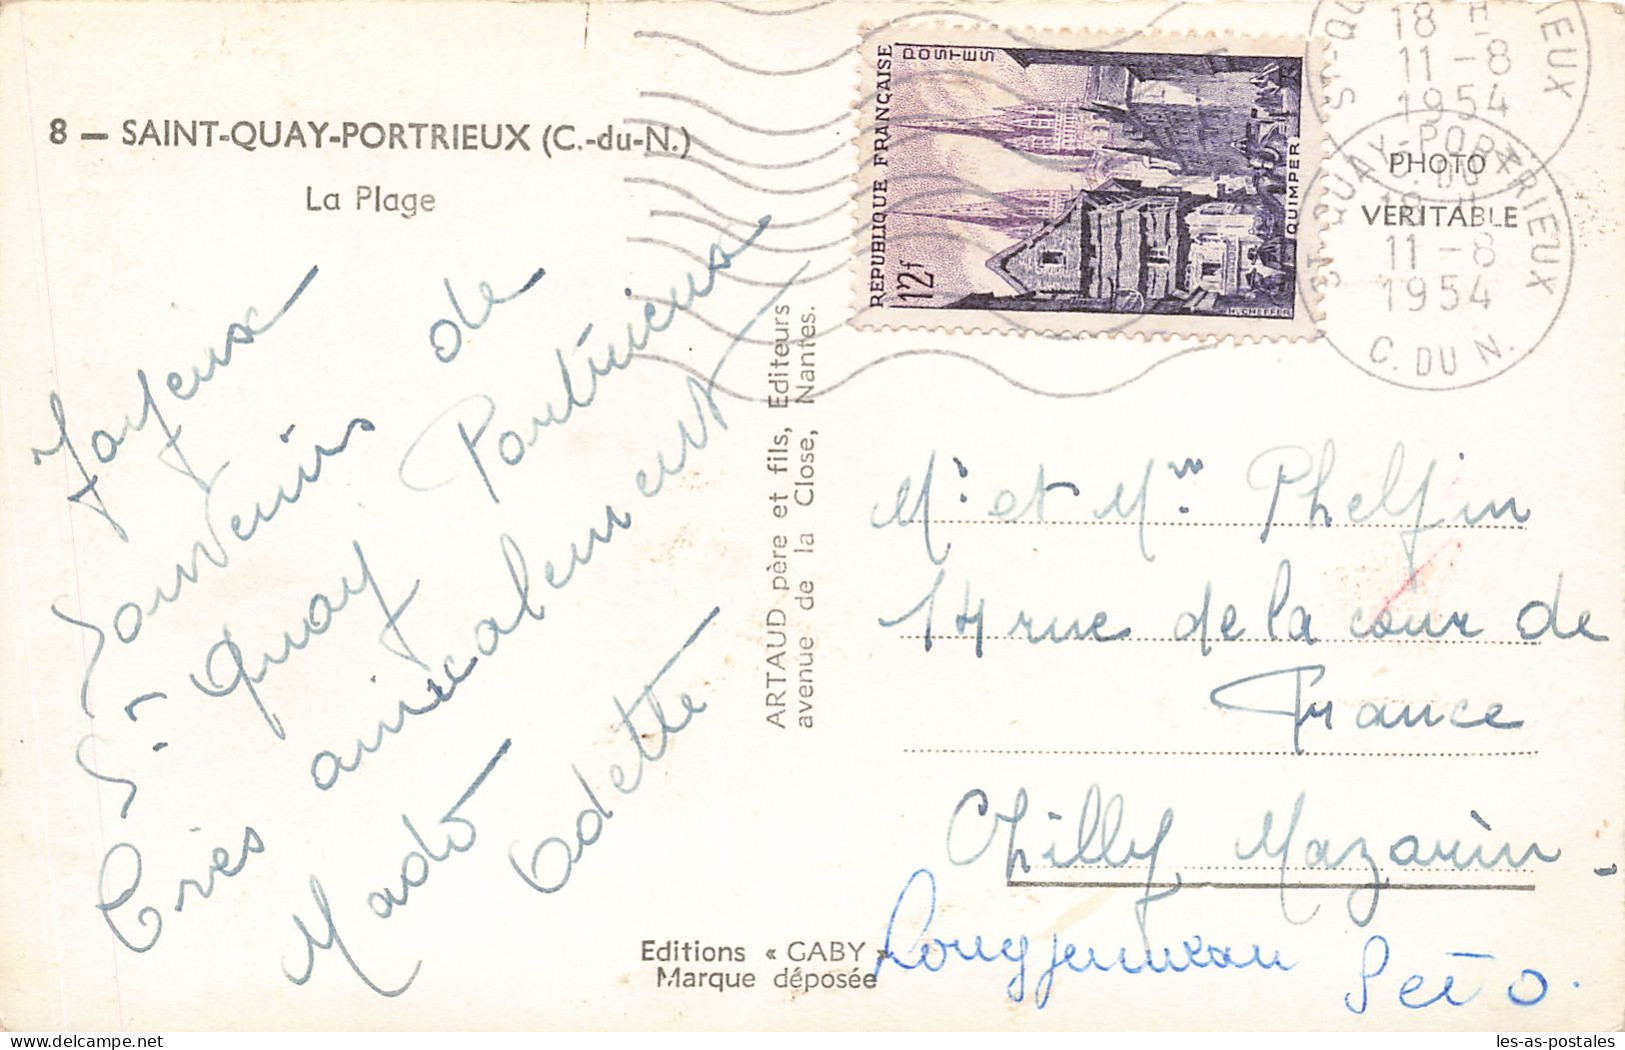 8 — SAINT-QUAY-PORTRIEUX (C.-du-N.)
La Plage
Joyeux
Souvenirs de
St Quay Portrieux
Très amicalement
Mado
Odette
ARTAUD père et fils, Editeurs
avenue de la Close, Nantes.
Editions « GABY »
Marque déposée
REPUBLIQUE FRANÇAISE
POSTES
12f
QUIMPER
H. CHEFFER
18 H
11 - 8
1954
ST-QUAY-PORTRIEUX
18 H
11 - 8
1954
C. DU N.
PHOTO
VERITABLE
Mr et Mme Phelfin
14 rue de la cour de
France
Chilly Mazarin
Longjumeau
S et O.
les-as-postales